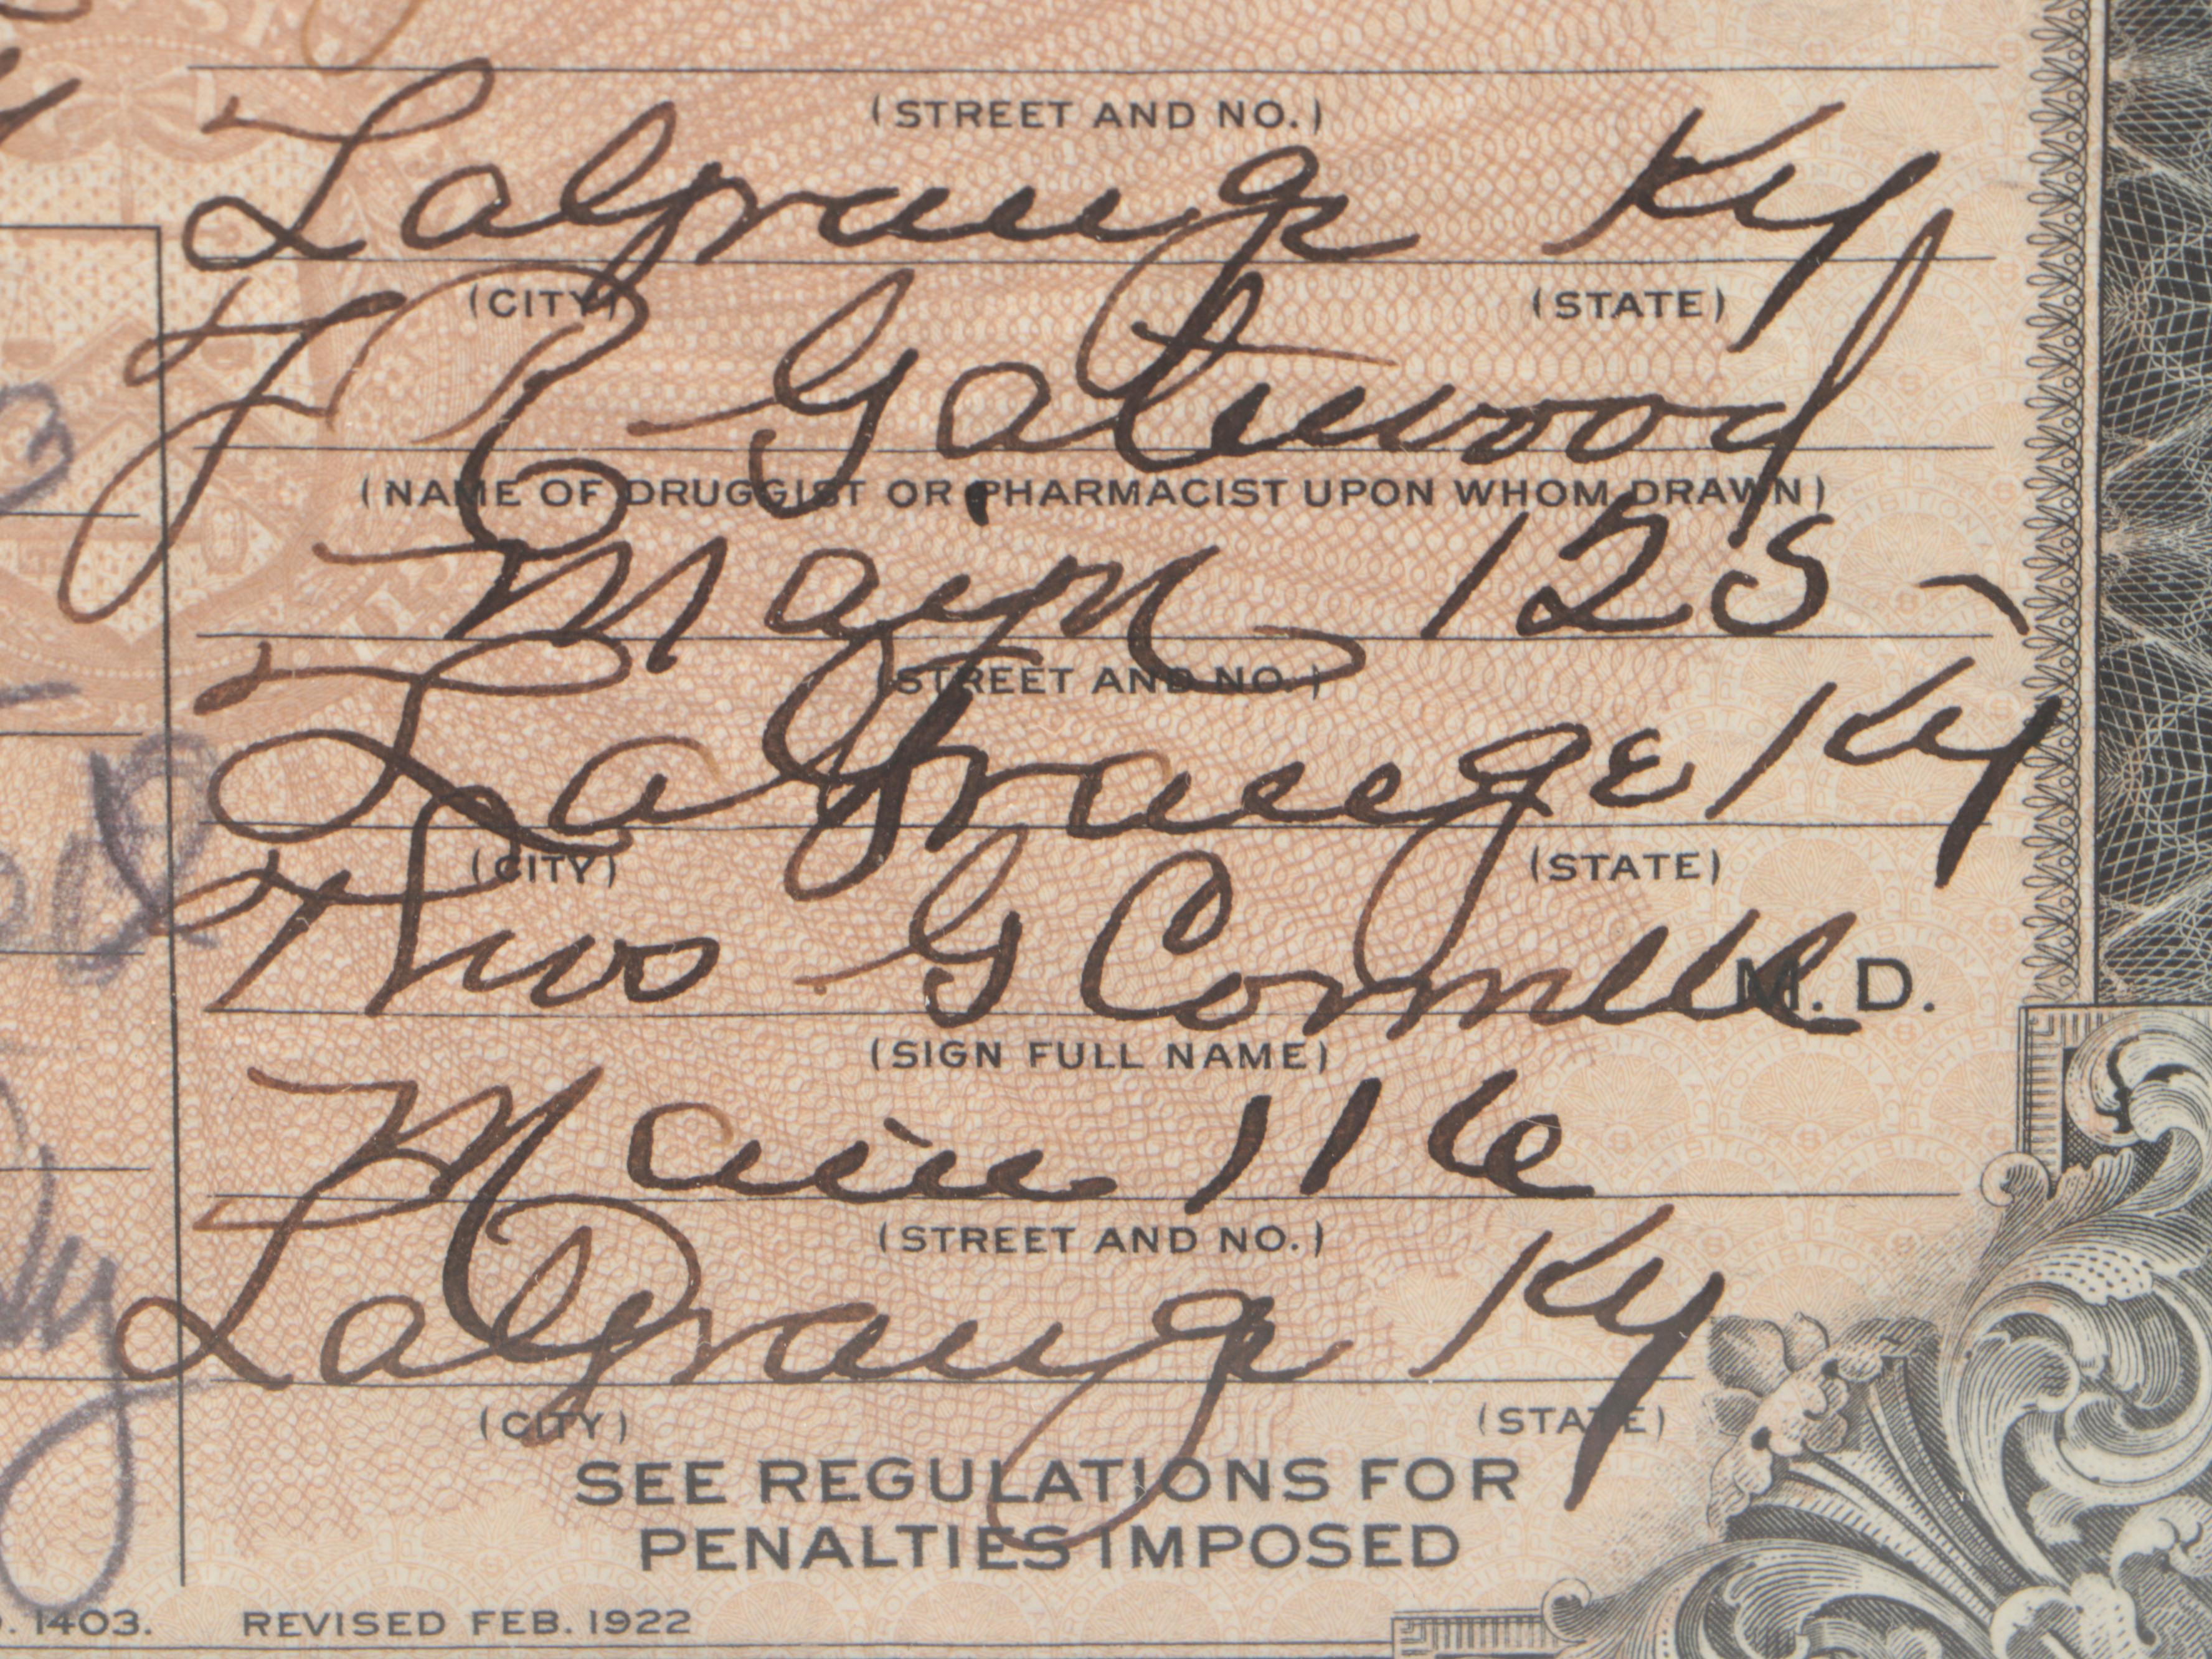 (STREET AND NO.)
LaGrange Ky
(CITY) (STATE)
Gatewood
(NAME OF DRUGGIST OR PHARMACIST UPON WHOM DRAWN)
Main 125
(STREET AND NO.)
LaGrange Ky
(CITY) (STATE)
Theo G Connell M.D.
(SIGN FULL NAME)
Main 116
(STREET AND NO.)
LaGrange Ky
(CITY) (STATE)
SEE REGULATIONS FOR
PENALTIES IMPOSED
1403. REVISED FEB. 1922